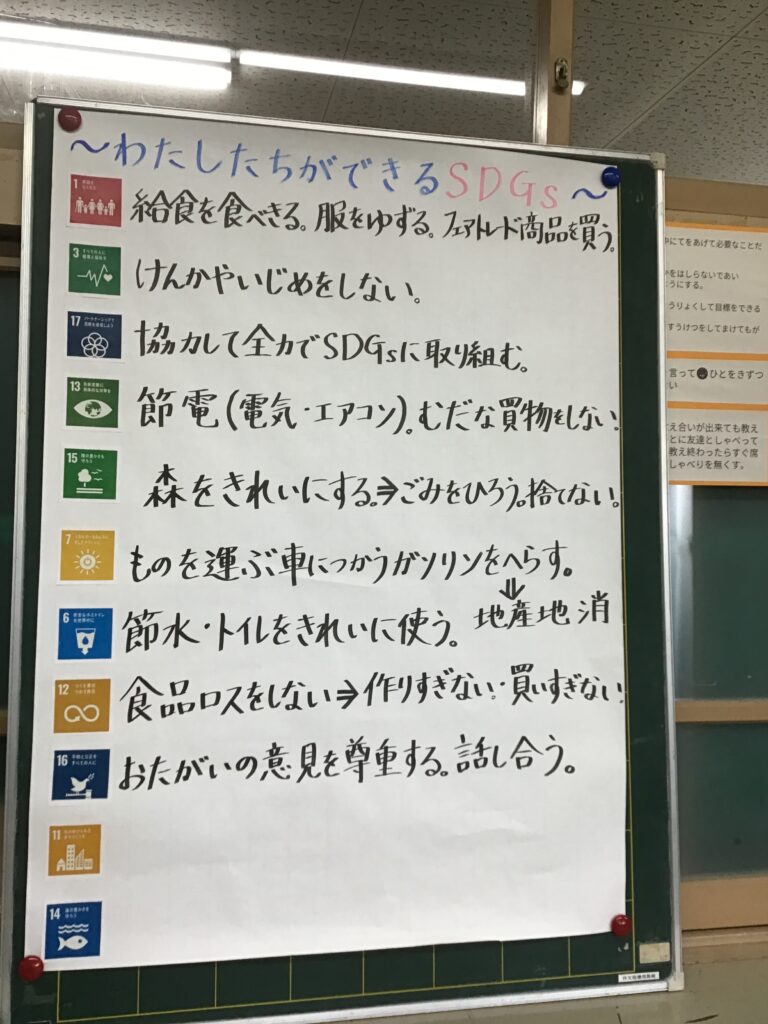 ～わたしたちができるSDGs～
1
給食を食べきる。服をゆずる。フェアトレード商品を買う。
3 すべての人に
健康と福祉を
けんかやいじめをしない。
17 パートナーシップで
目標を達成しよう
協力して全力でSDGsに取り組む。
13 気候変動に
具体的な対策を
節電(電気・エアコン)。むだな買物をしない!
15 陸の豊かさも
守ろう
森をきれいにする。⇒ごみをひろう。捨てない!
7
ものを運ぶ車につかうガソリンをへらす。
⇓
地産地消
6 安全な水とトイレ
を世界中に
節水・トイレをきれいに使う。
12 つくる責任
つかう責任
食品ロスをしない⇒作りすぎない!・買いすぎない!
16 平和と公正を
すべての人に
おたがいの意見を尊重する。話し合う。
11 住み続けられる
まちづくりを
14 海の豊かさを
守ろう
にてをあげて必要なことだ
をはしらないであい
うにする。
うりょくして目標をできる
すうけつをしてまけてもが
言って
ひとをきずつ
い
え合いが出来ても教え
とに友達としゃべって
教え終わったらすぐ席
しゃべりを無くす。